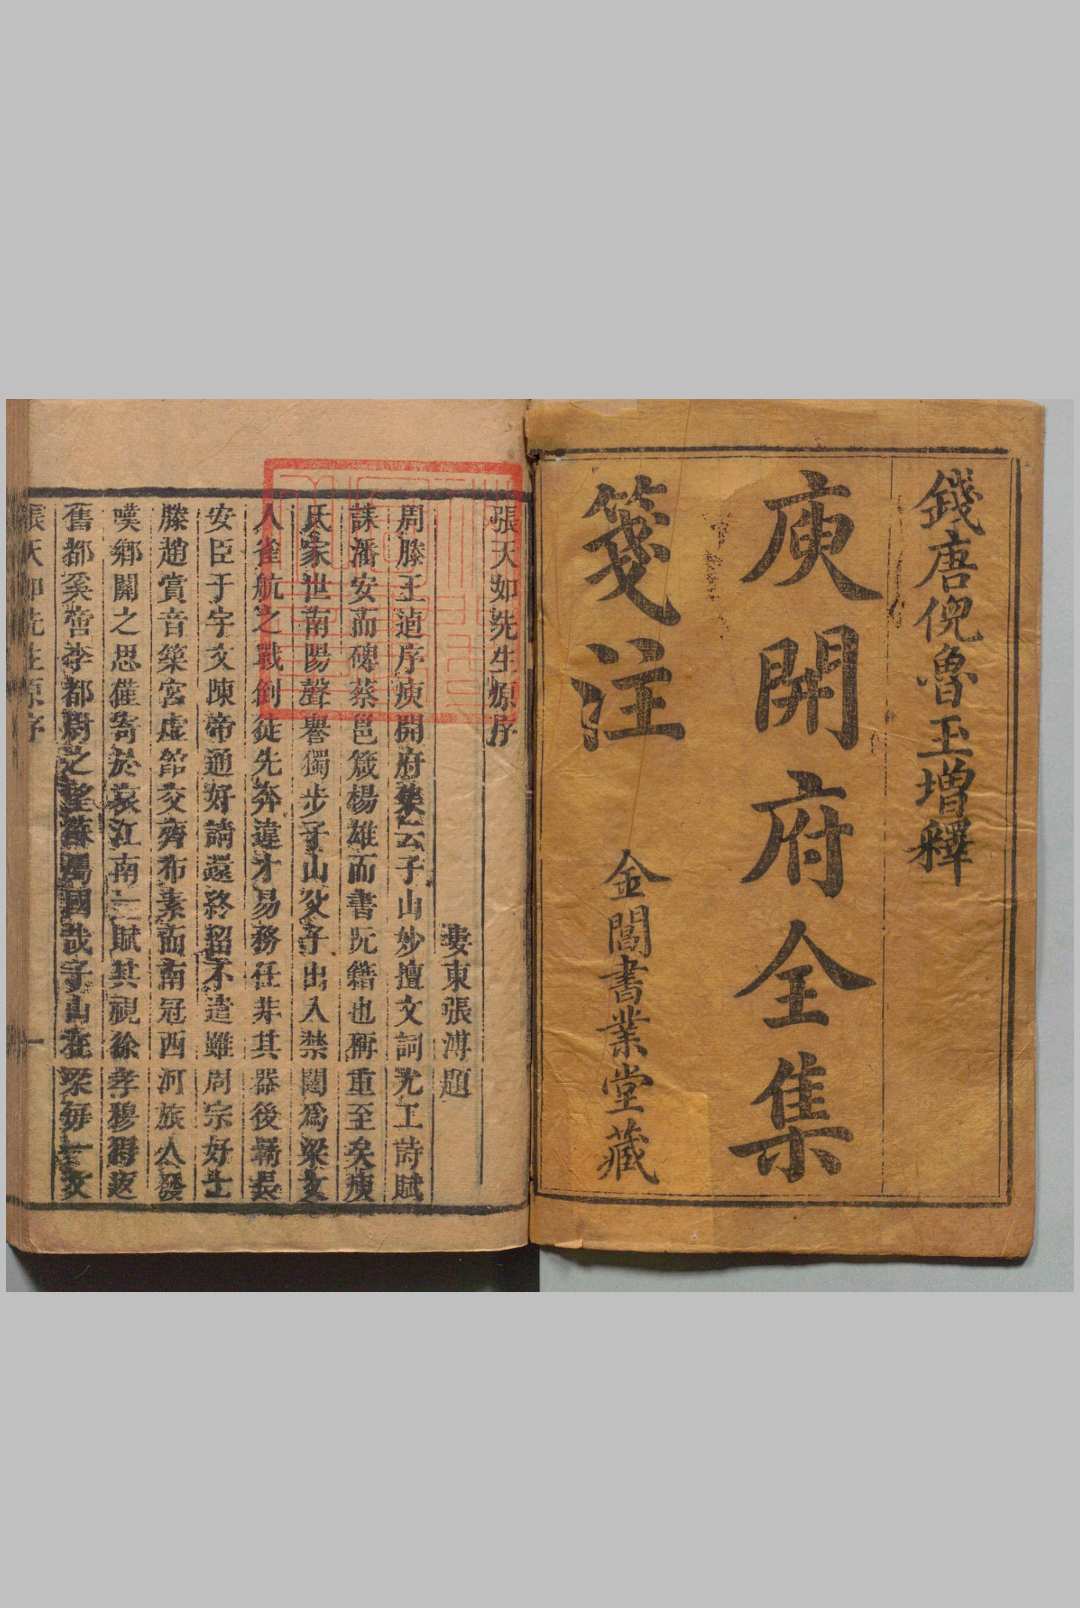 錢唐倪魯玉增釋
庾開府全集
箋注
金閶書業堂藏
張天如先生原序
婁東張溥題
周滕王逌序庾開府集云子山妙擅文詞尤工詩賦
誄潘安而碑蔡邕箴楊雄而書阮籍也稱重至矣庾
氏家世南陽聲譽獨步子山父子出入禁闥爲梁文
人雀航之戰倒徒先奔違才易務任非其器後竊長
安臣于宇文陳帝通好請還終留不遣雖周宗好士
滕趙賞音築宮虛館交齊布素而南冠西河旅人發
嘆鄉關之思僅寄於哀江南一賦其視徐孝穆得返
舊都奚啻李都尉之望蘇屬國哉子山在梁每一文
張天如先生原序
一